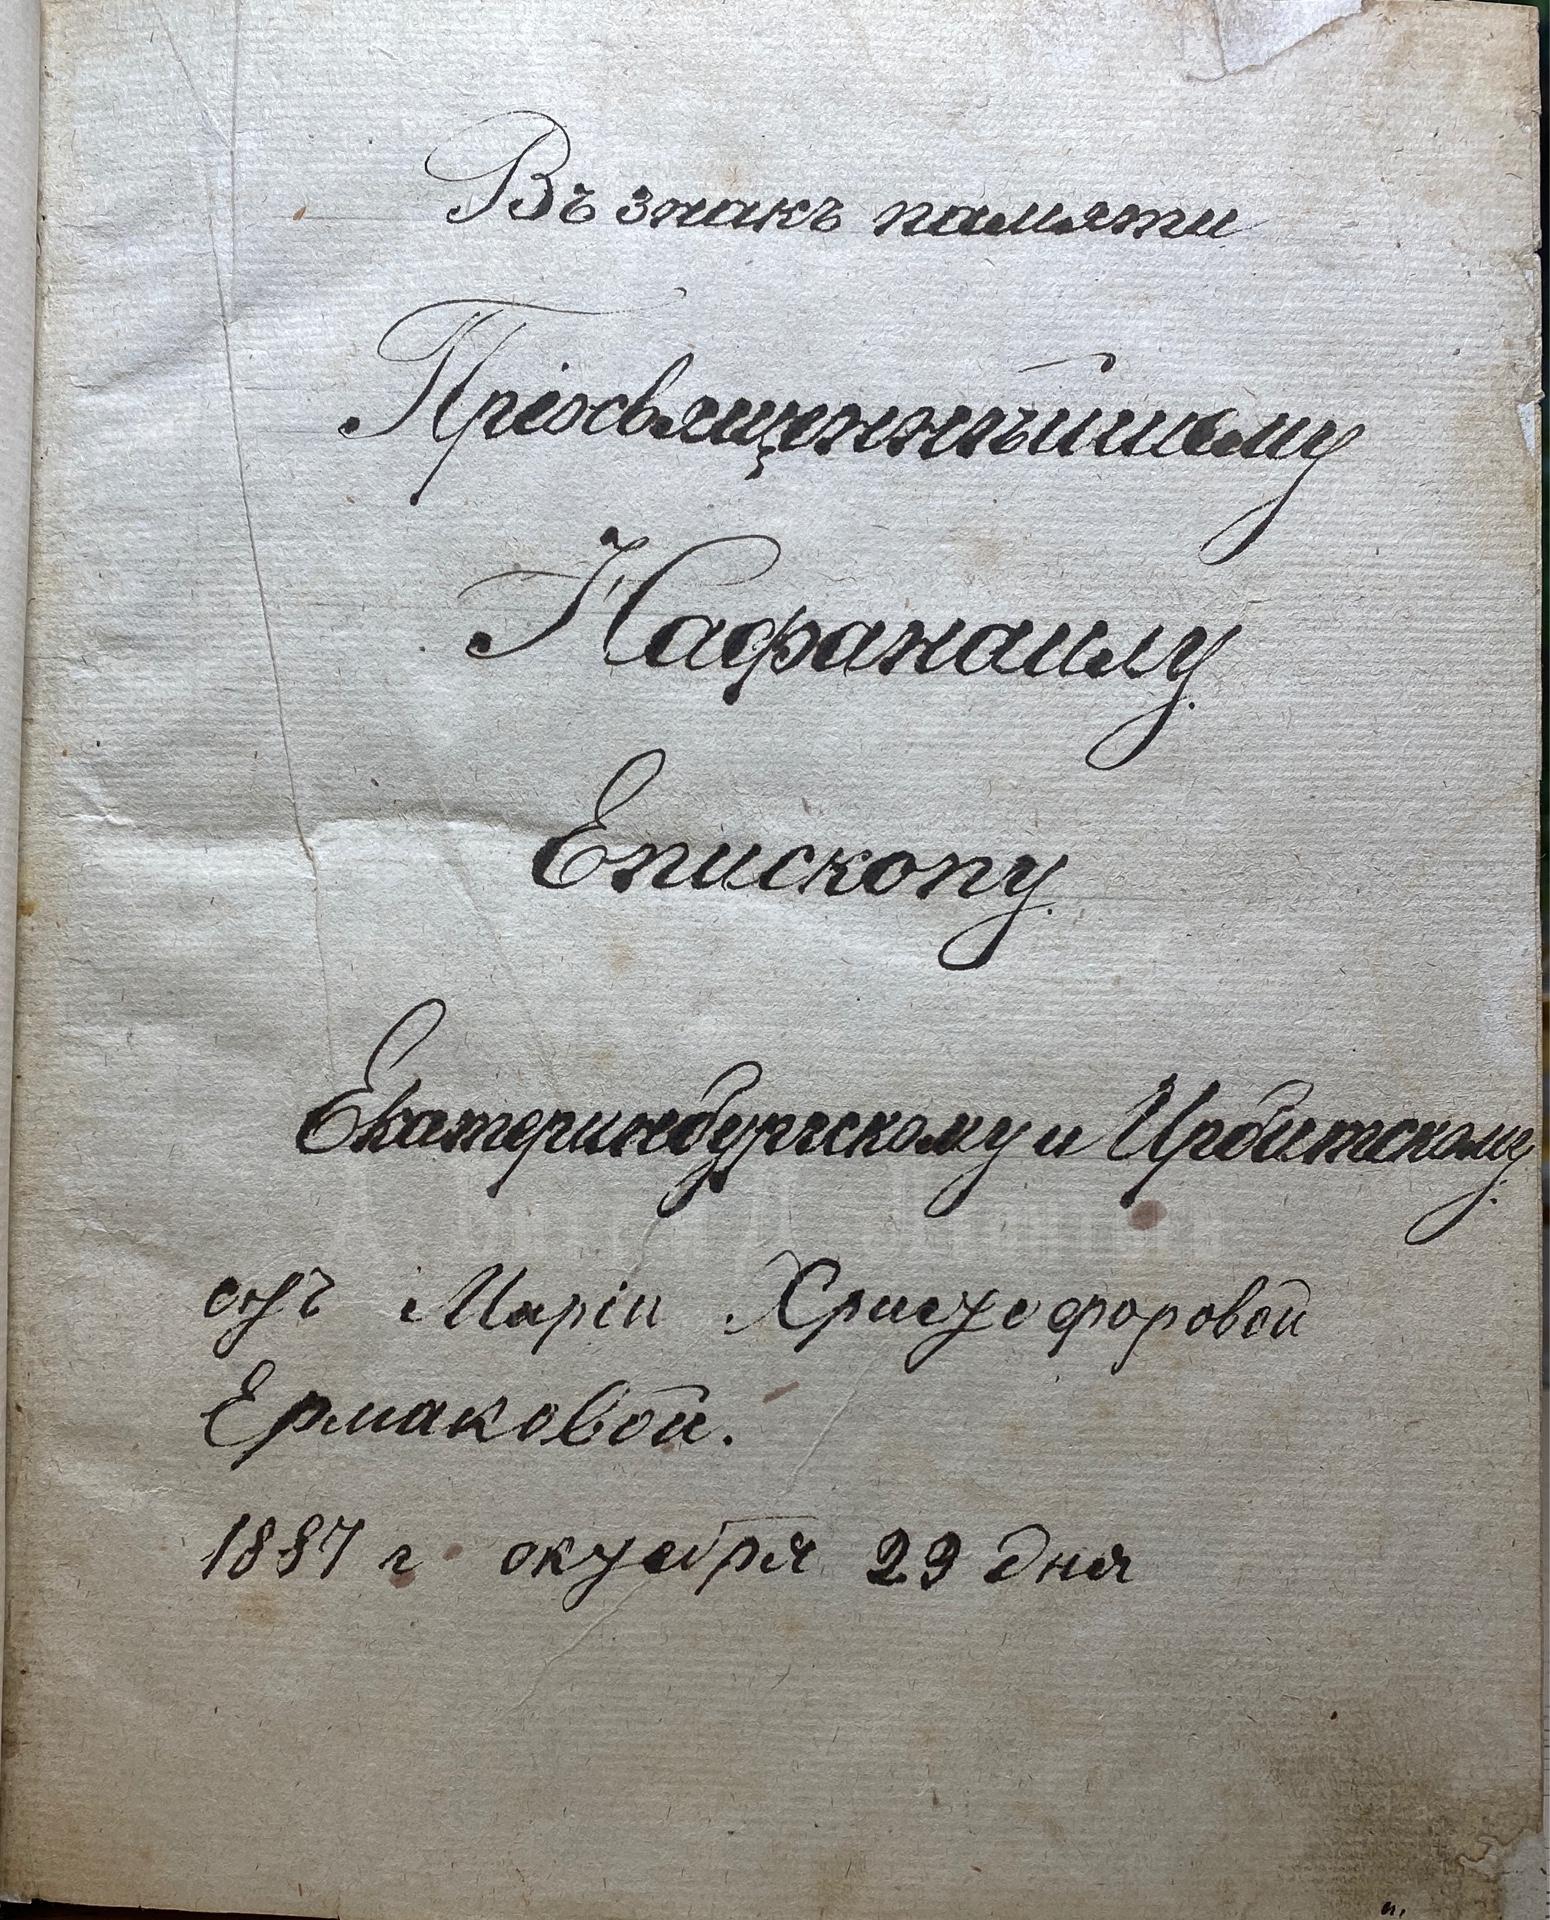 Въ знакъ памяти
Пріосвященнѣйшему
Нафанаилу
Епископу
Екатеринбургскому и Ирбитскому
отъ Маріи Христофоровой
Ермаковой.
1887 г октября 29 дня